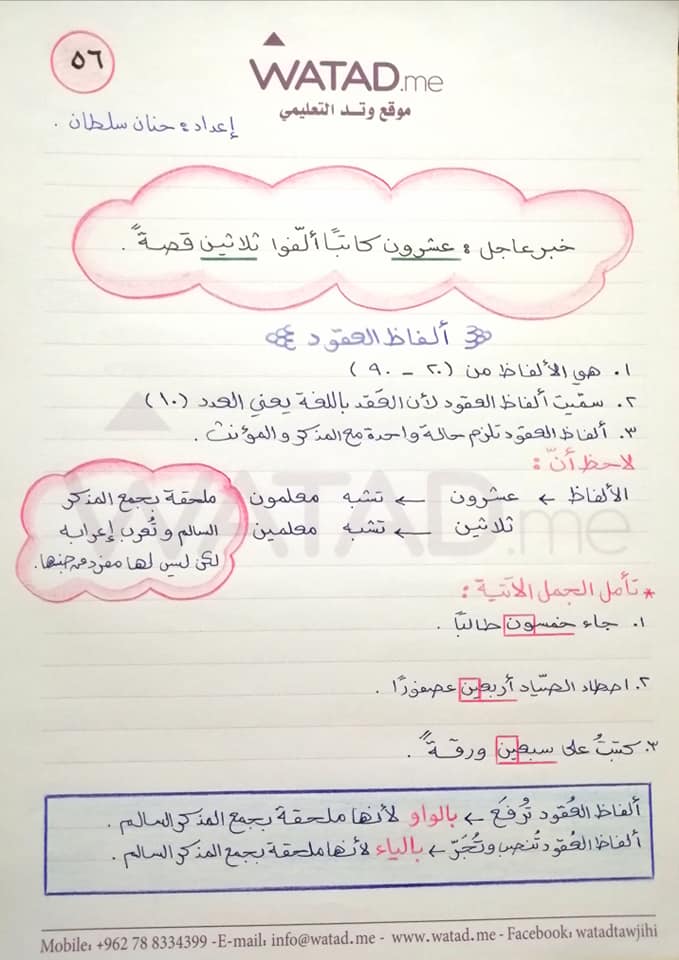 ٥٦
WATAD.me
موقع وتد التعليمي
إعداد: حنان سلطان .
خبر عاجل : عشرون كاتبًا ألّفوا ثلاثين قصةً .
ألفاظ العقود
١. هي الألفاظ من (٢٠ - ٩٠)
٢. سمّيت ألفاظ العقود لأن العَقد باللغة يعني العدد (١٠)
٣. ألفاظ العقود تلزم حالة واحدة مع المذكر والمؤنث .
لاحظ أنّ :
الألفاظ ← عشرون ← تشبه معلمون
ثلاثين ← تشبه معلمين
ملحقة بجمع المذكر
السالم وتُعرب إعرابه
لكن ليس لها مفرد من جنسها.
* تأمل الجمل الآتية :
١. جاء خمسون طالبًا .
٢. اصطاد الصيّاد أربعين عصفورًا .
٣. كتبتُ على سبعين ورقةً .
ألفاظ العُقود تُرفَع ← بالواو لأنها ملحقة بجمع المذكر السالم .
ألفاظ العُقود تُنصب وتُجَرّ ← بالياء لأنها ملحقة بجمع المذكر السالم .
Mobile: +962 78 8334399 -E-mail: info@watad.me - www.watad.me - Facebook: watadtawjihi